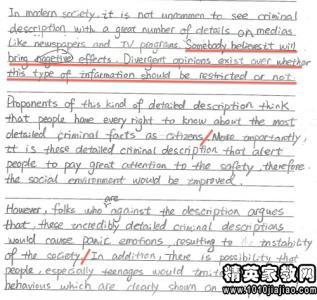 In modern society, it is not uncommon to see criminal
description with a great number of details on medias
like newspapers and TV programs. Somebody believes it will
bring negetive effects. Divergent opinions exist over whether
this type of information should be restricted or not.
Proponents of this kind of detailed description think
that people have every right to know about the most
detailed criminal facts as citizens. More importantly,
it is these detailed criminal description that alert
people to pay great attention to the safety, therefore
the social environment would be improved.
However, folks who are against the description argues
that, these incredibly detailed criminal descriptions
would cause panic emotions, resulting to instability
of the society. In addition, There is possibility that
people, especially teenages would imitate
behavious which are clearly shown on
精英家教网
www.1010jiajiao.com